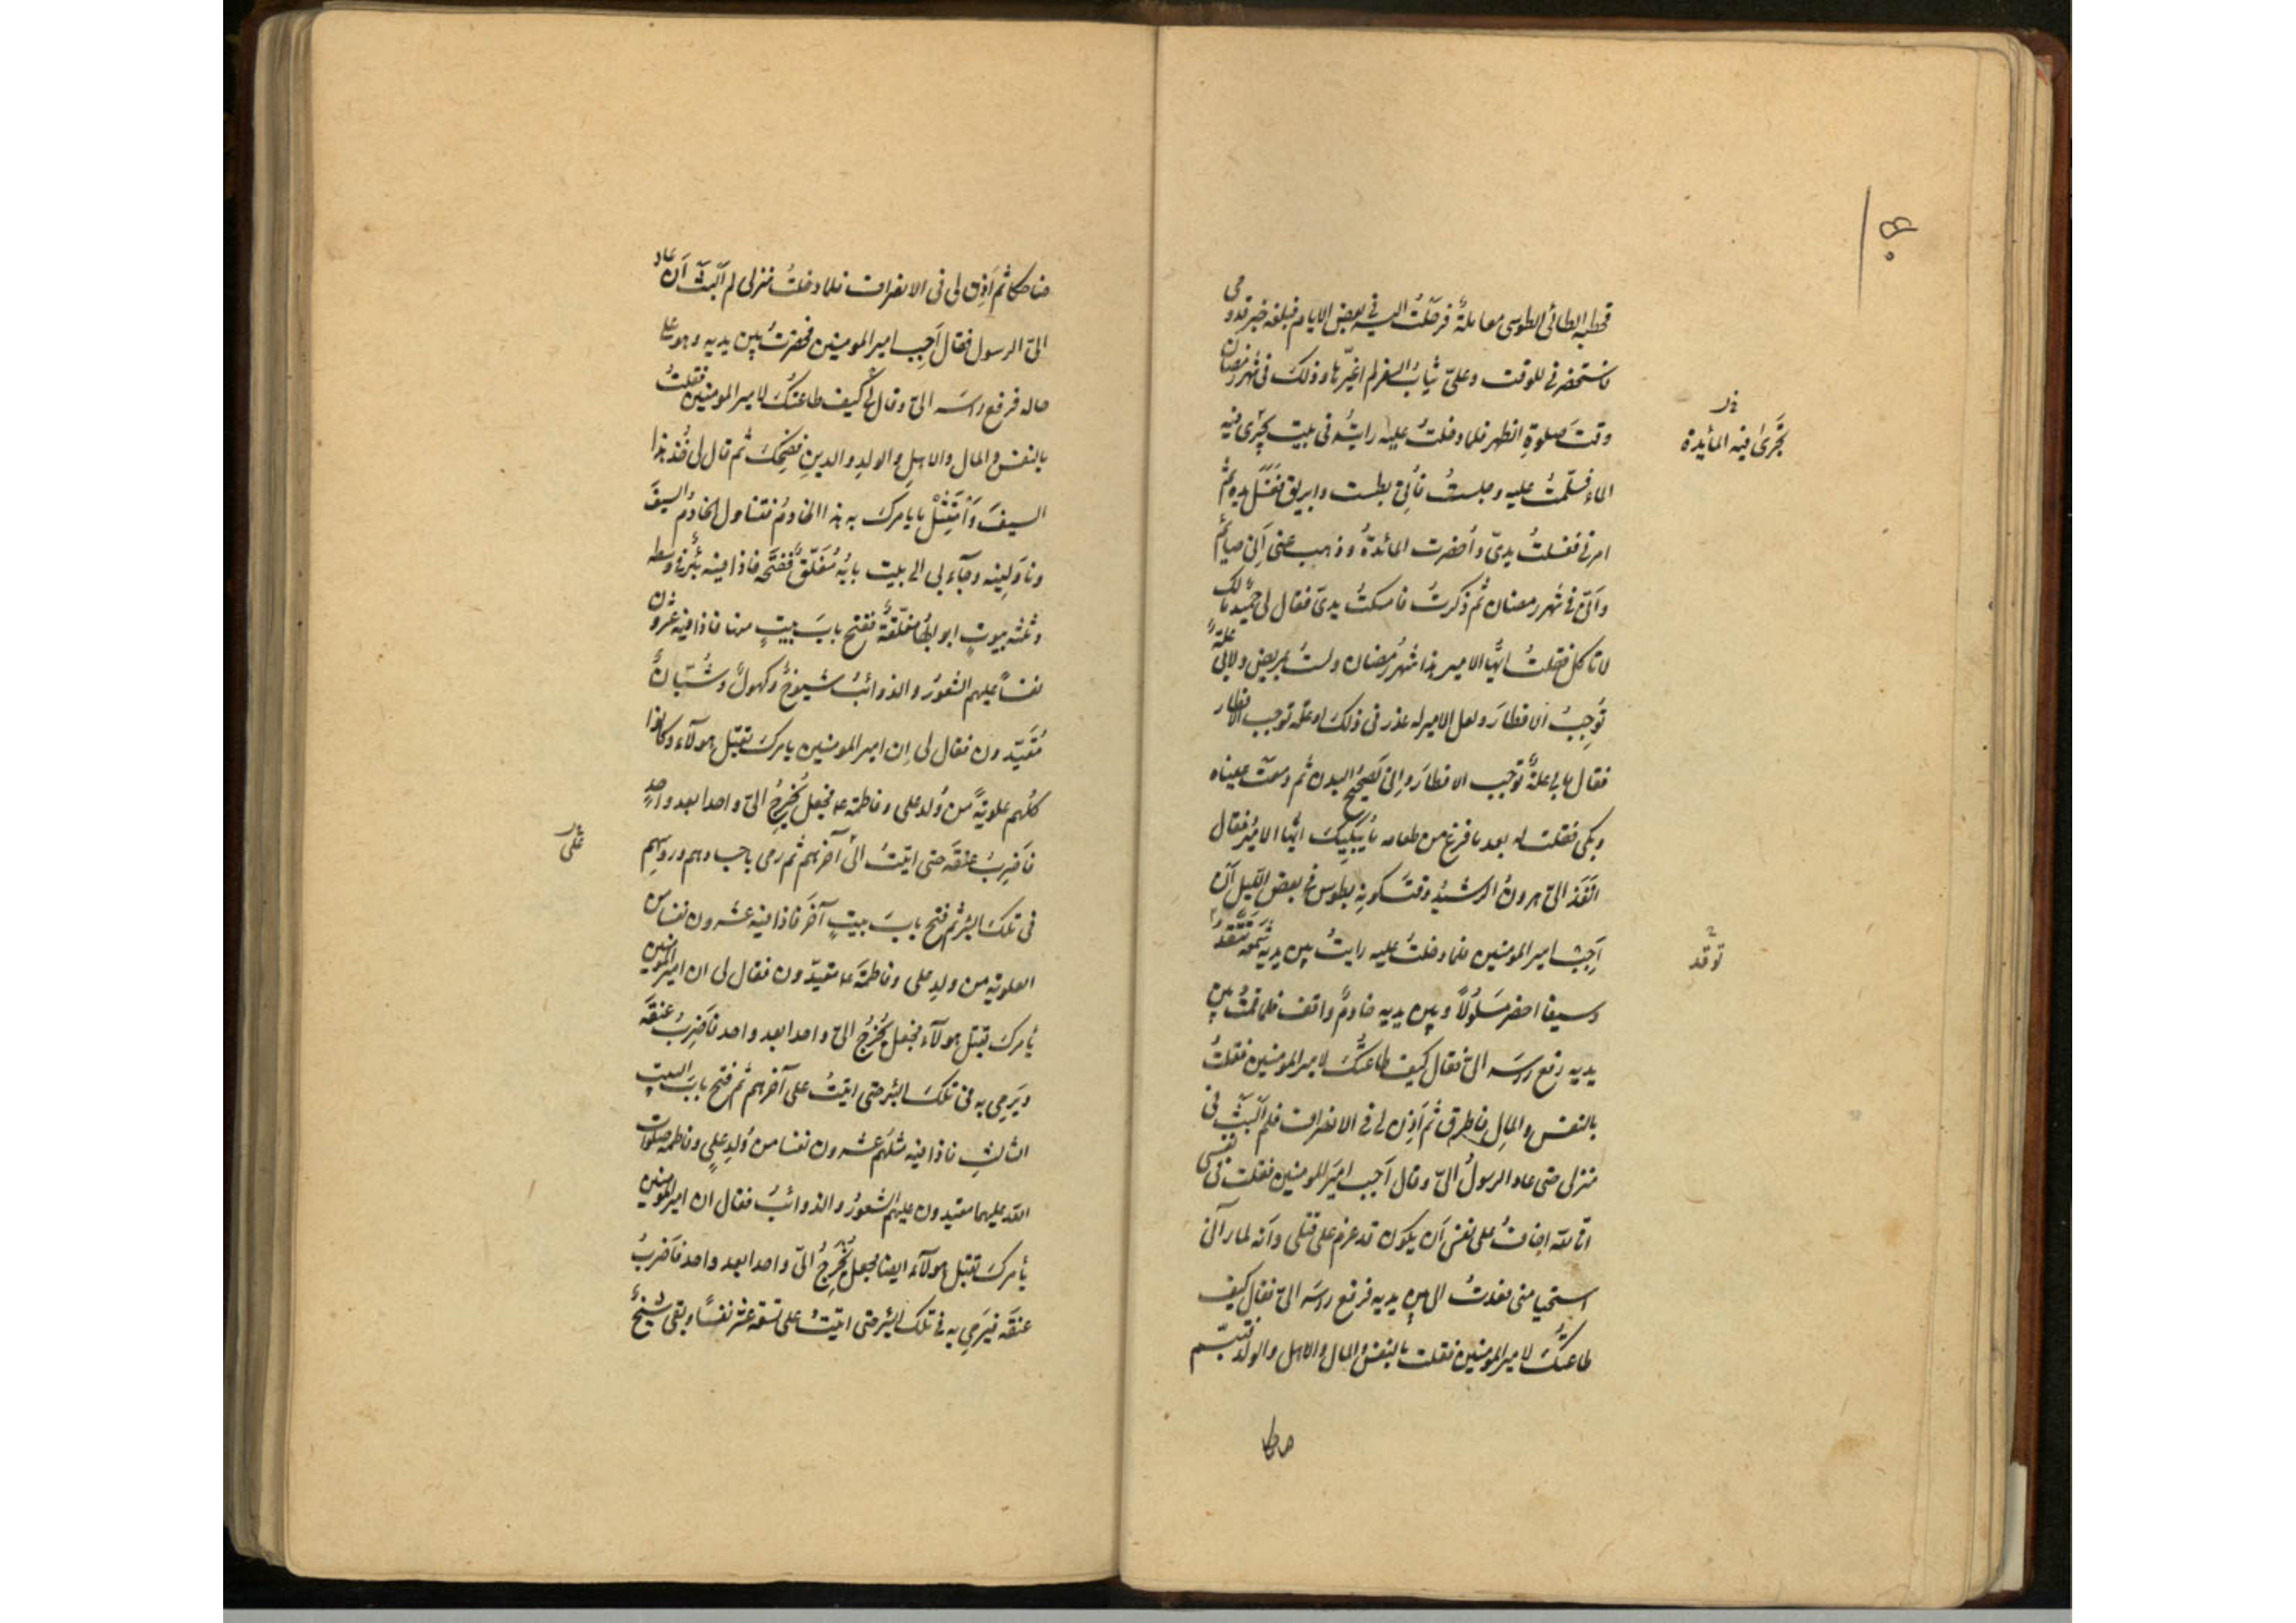 قحطبة الطائى الطوسى معاملةٌ فرحَلتُ اليه فى بعض الايام فبلغه خبر قدومى
فاستحضرنى للوقت وعلىّ ثيابُ السفر لم اغيّرها وذلكَ فى شهر رمضان
وقتَ صلوةِ الظهر فلما دخلتُ عليه رايتُه فى بيت يجرى فيه
الماء فسلّمتُ عليه وجلستُ فاُتِىَ بطست وابريق فغسَل يديه ثم
امرنى فغسلتُ يدىّ واُحضرت المائدةُ وذهب عنى اَنى صائمٌ
واَنّى فى شهر رمضان ثم ذكرتُ فامسكتُ يدى فقال لى حميد مالك
لا تاكل فقلتُ ايّها الامير هذا شهرُ رمضان ولستُ بمريض ولا بى علةٌ
تُوجِبُ الافطارَ ولعل الامير له عذر فى ذلكَ او علة توجب الافطار
فقال ما بى علةٌ توجب الافطارَ واِنى لصحيحُ البدن ثم دمعَت عيناه
وبكى فقلت له بعد ما فرغ من طعامه ما يُبكيكَ ايّها الاميُر فقال
انَفَذ الىّ هرونُ الرشيدُ وقتَ كونِه بطوس فى بعض الليل اَن
اَجِبْ امير المومنين فلما دخلتُ عليه رايتُ بين يديه شمعةً تتّقدُ
وسيفا اخضر مَسلُولاً وبين يديه خادمٌ واقف فلما قمتُ بين
يديه رفع راسَه الىّ فقال كيف طاعتُكَ لامير المومنين فقلتُ
بالنفس والمالِ فاطرق ثم اَذِن لى فى الانصراف فلم اَلبَث فى
منزلى حتى عاد الرسولُ الىّ وقال اَجب اميَر المومنين فقلت فى نفسى
انا لله اخافُ على نفسى اَن يكون قد عزم على قتلى واَنه لما رآنى
استحيا منى فعدتُ الى بين يديه فرفع راسَه الىّ فقال كيف
طاعتُكَ لامير المومنين فقلت بالنفس والمال والاهل والولد فتبسّم
يَجرى فيه المائدة
توقد
ضاحكا ثم اَذِن لى فى الانصراف فلما دخلتُ منزلى لم اَلبَث اَن عاد
الىّ الرسول فقال اَجِب امير المومنين فحضرتُ بين يديه وهو على
حاله فرفع راسَه الىّ وقال لى كيف طاعتُكَ لامير المومنين فقلتُ
بالنفس والمال والاهلِ والولدِ والدينِ فضحِكَ ثم قال لى خُذ هذا
السيفَ وَامتَثِلْ ما يامركَ به هذا الخادمُ فتناول الخادمُ السيفَ
وناوَلِنيه وجاء بى الى بيت بابُه مُغَلّقٌ ففتَحه فاذا فيه بئرٌ فى وسطه
وثلثه بيوتٍ ابوابُها مغلّقةٌ ففتح بابَ بيتٍ منها فاذا فيه عشرون
نفسًا عليهم الشعورُ والذوائبُ شيوخٌ وكهولٌ وشُبّانٌ
مُقَيّدون فقال لى اِن امير المومنين يامركَ بقتل هولآء وكانوا
كلّهم علويةً من وُلد على وفاطمة ع فجعل يُخرِجُ الىّ واحدا بعد واحدٍ
فاَضرِبُ عنقَه حتى اتيتُ الىٰ آخرهم ثم رمى باجسادهم وروسهم
فى تلكَ البئر ثم فتح بابَ بيتٍ آخَر فاذا فيه عشرون نفسا من
العلوية من ولد على وفاطمَة ع مقيدّون فقال لى ان امير المومنين
يأمركَ بقتل هولآء فجعل يُخرجُ الىّ واحدا بعد واحد فاَضرِبُ عنقَه
ويَرمِى به فى تلكَ البئر حتى اتيتُ على آخرهم ثم فتح بابَ البيتِ
الثالثِ فاذا فيه مثلهُم عشرون نفسا من وُلدِ علىٍ وفاطمه صلوات
الله عليهما مقيدون عليهم الشعورُ والذوائبُ فقال ان امير المومنين
يأمركَ بقتل هولآء ايضا فجعل يُخرِجُ الىّ واحدا بعد واحد فاَضربُ
عنقَه فيَرمِى به فى تلك البئر حتى اتيتُ على تسعة عشر نفسًا وبقى شيخٌ
علىٰ